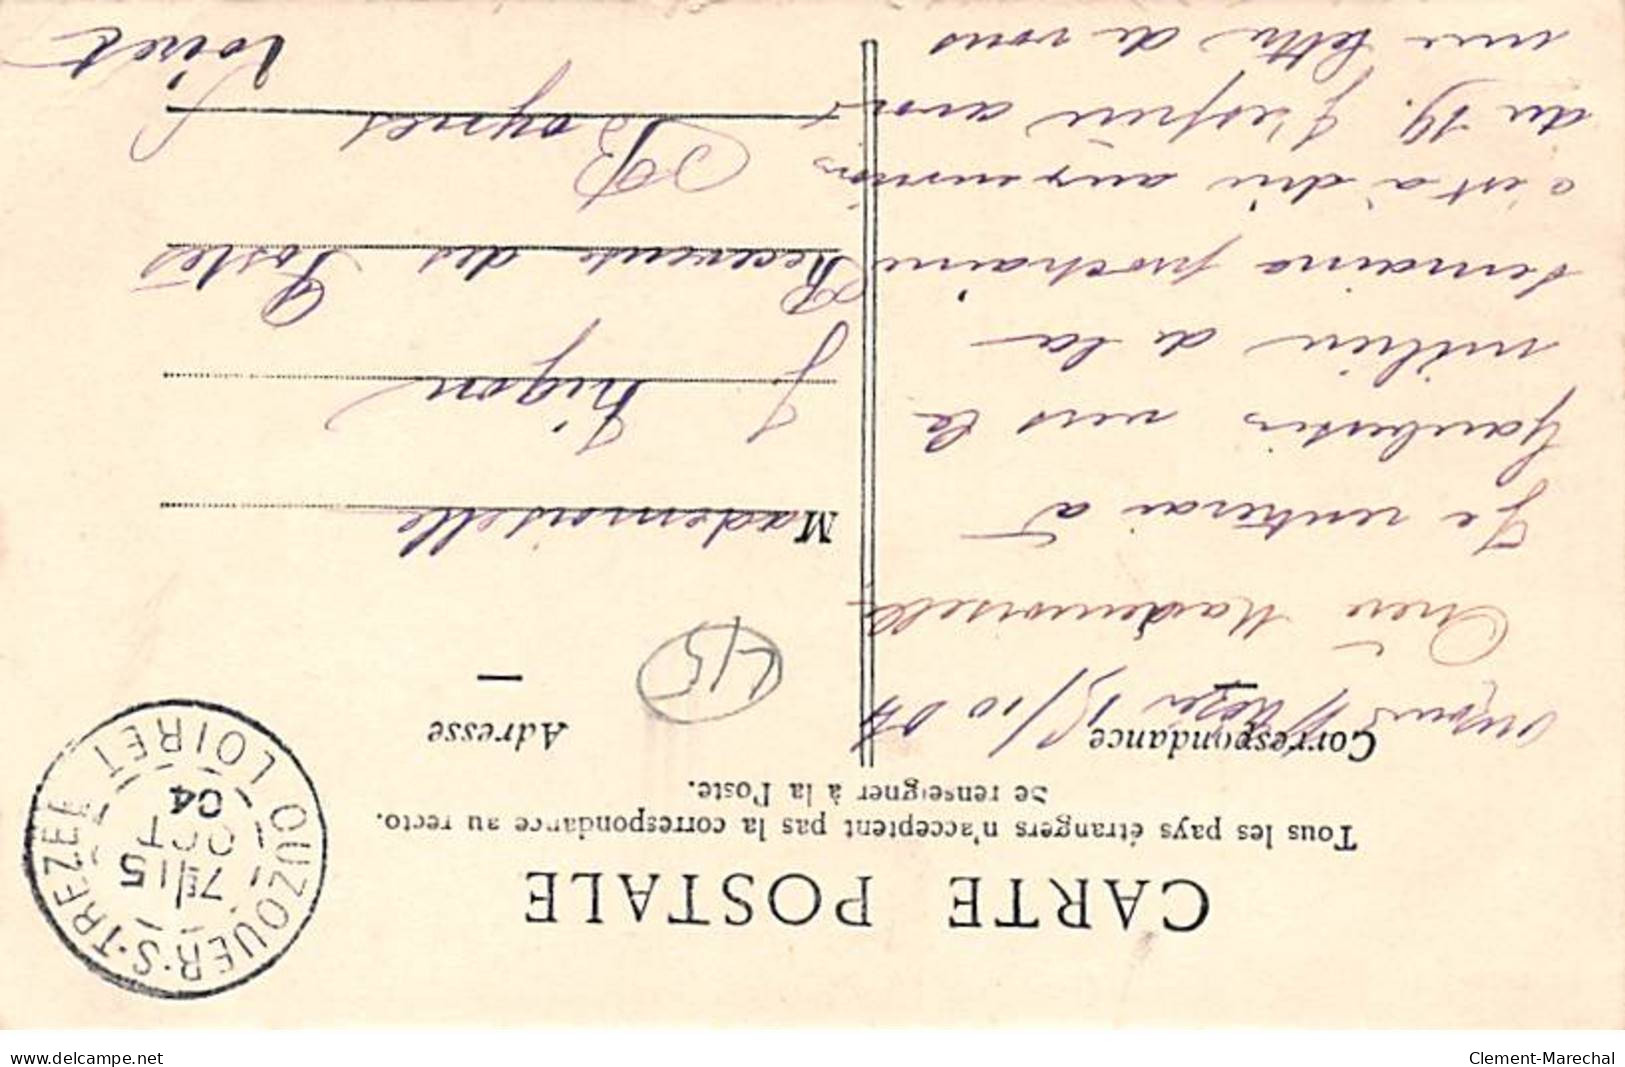 CARTE POSTALE
Tous les pays étrangers n'acceptent pas la correspondance au recto.
Se renseigner à la Poste.
Correspondance
Adresse
OUZOUER-S-TREZEE LOIRET
7E/15
OCT
04
45
15/10 04
Chère Mademoiselle
Je rentrerai à
Gaubertin vers la
milieu de la
semaine prochaine
c'est à dire aux environs
du 19. J'espère avoir
une lettre de vous
Mademoiselle
J
Receveuse des Postes
Boynes
Loiret
delcampe.net
Clement-Marechal